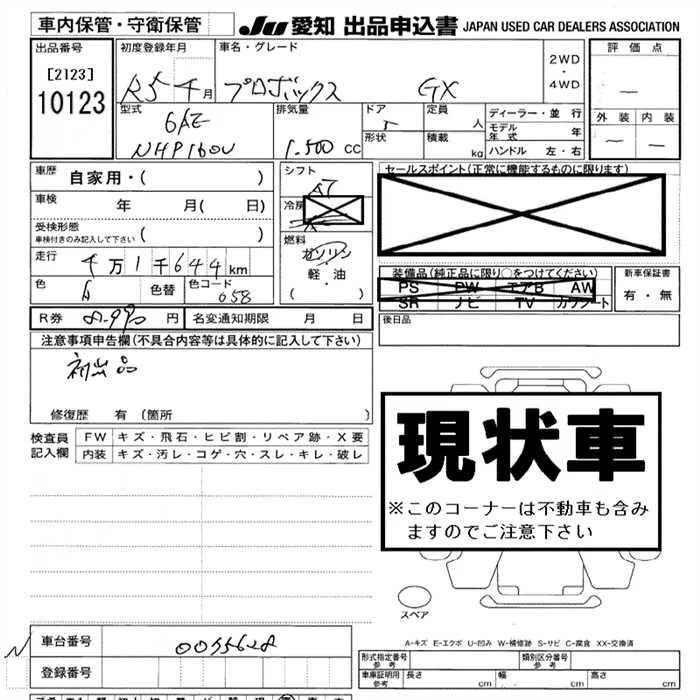 車内保管・守衛保管
JU 愛知 出品申込書 JAPAN USED CAR DEALERS ASSOCIATION
出品番号 初度登録年月 車名・グレード 評価点
[2123]
10123
R5 年 月 プロボックス GX 2WD・4WD
型式 6AE 排気量 ドア 5 定員 人 ディーラー・並行
NHP160V 1.500 CC 形状 積載 kg モデル年式 年
ハンドル 左・右
外装 内装
車歴 自家用・( ) シフト AT
セールスポイント(正常に機能するものに限ります)
車検 年 月( 日) 冷房
受検形態 ( )
車検付きのみ記入して下さい
燃料 ガソリン
軽・油
( ・ )
走行 万1千644km
色 色替 色コード 058
装備品(純正品に限り○をつけてください) 新車保証書
PS PW エアB AW 有・無
SR ナビ TV カワシート
R券 8.990 円 名変通知期限 月 日
後日品
注意事項申告欄(不具合内容等は具体的に記入して下さい)
初出品
修復歴 有(箇所 )
検査員記入欄 FW キズ・飛石・ヒビ割・リペア跡・X要
内装 キズ・汚レ・コゲ・穴・スレ・キレ・破レ
現状車
※このコーナーは不動車も含み
ますのでご注意下さい
スペア
A-キズ E-エクボ U-凹み W-補修跡 S-サビ C-腐食 XX-交換済
車台番号 0055628
登録番号
形式指定番号 参考 類別区分番号 参考
車庫証明用 参考 長さ cm 幅 cm 高さ cm